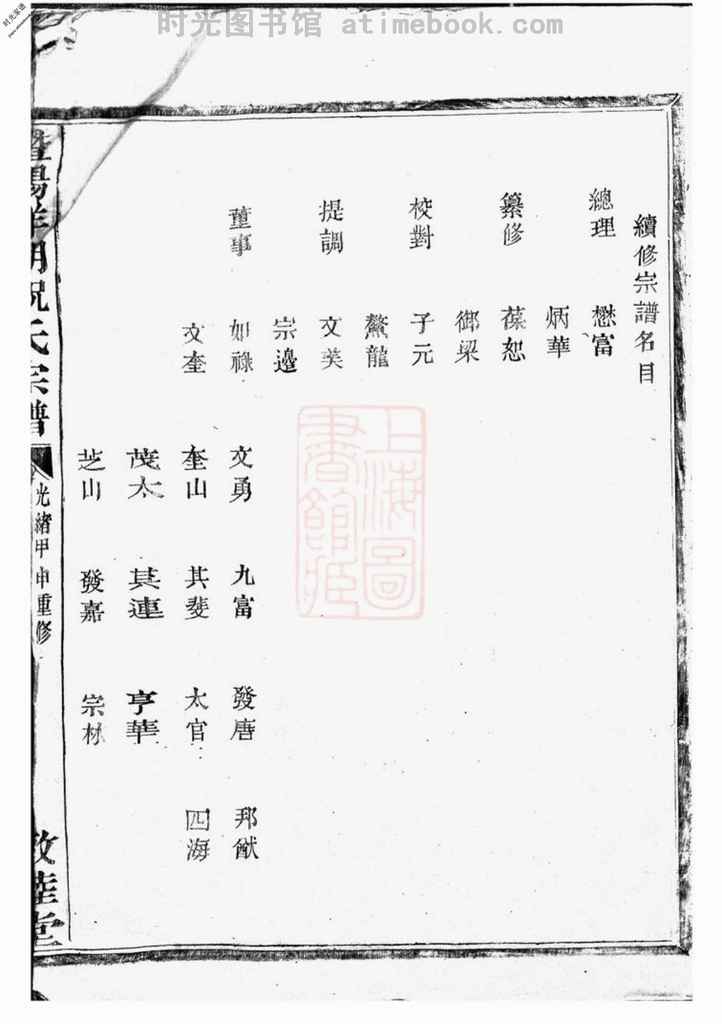 时光图书馆 atimebook.com
續修宗譜名目
總理 懋富
炳華
纂修 葆恕
御梁
校對 子元
鰲龍
提調 文美
宗邉
董事 如祿 文勇 九富 發唐 邦猷
文奎 奎山 其斐 太官 四海
茂太 其連 亨華
芝山 發嘉 宗材
暨陽 湖祝氏宗譜 光緒甲申重修 敦睦堂
上海圖書館藏